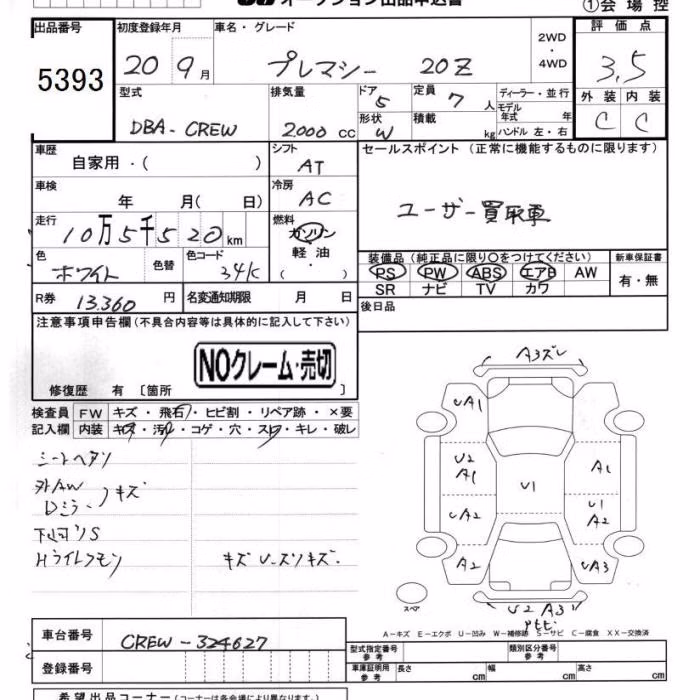 オークション出品申込書
①会場控
出品番号 初度登録年月 車名・グレード 2WD・4WD 評価点
5393 20 9月 プレマシー 20Z 3.5
型式 排気量 ドア 5 定員 7人 ディーラー・並行 外装 内装
DBA-CREW 2000cc 形状 W 積載 kg モデル年式 年 ハンドル 左・右 C C
車歴 自家用・( ) シフト AT セールスポイント(正常に機能するものに限ります)
車検 年 月( 日) 冷房 AC ユーザー買取車
走行 10万5千520km 燃料 ガソリン 軽油・( )
色 ホワイト 色替 色コード 34K
装備品(純正品に限り○をつけてください) 新車保証書
PS PW ABS エアB AW 有・無
SR ナビ TV カワ
R券 13.360円 名変通知期限 月 日 後日品
注意事項申告欄(不具合内容等は具体的に記入して下さい)
NOクレーム・売切
修復歴 有 [箇所 ]
検査員 FW キズ・飛石・ヒビ割・リペア跡・×要
記入欄 内装 キズ・汚レ・コゲ・穴・スレ・キレ・破レ
シートヘタリ
外AW
Dミラー キズ
下回リS
Hライトクモリ
A3ズレ
UA1
U2 A1 A1
U1
UA2 U1 A2
A2 UA3
U2 A3
スペア
A-キズ E-エクボ U-凹み W-補修跡 S-サビ C-腐食 XX-交換済
車台番号 CREW-324627
型式指定番号 参考 類別区分番号 参考
登録番号 車庫証明用 参考 長さ cm 幅 cm 高さ cm
希望出品コーナー(コーナーは各会場により異なります。)